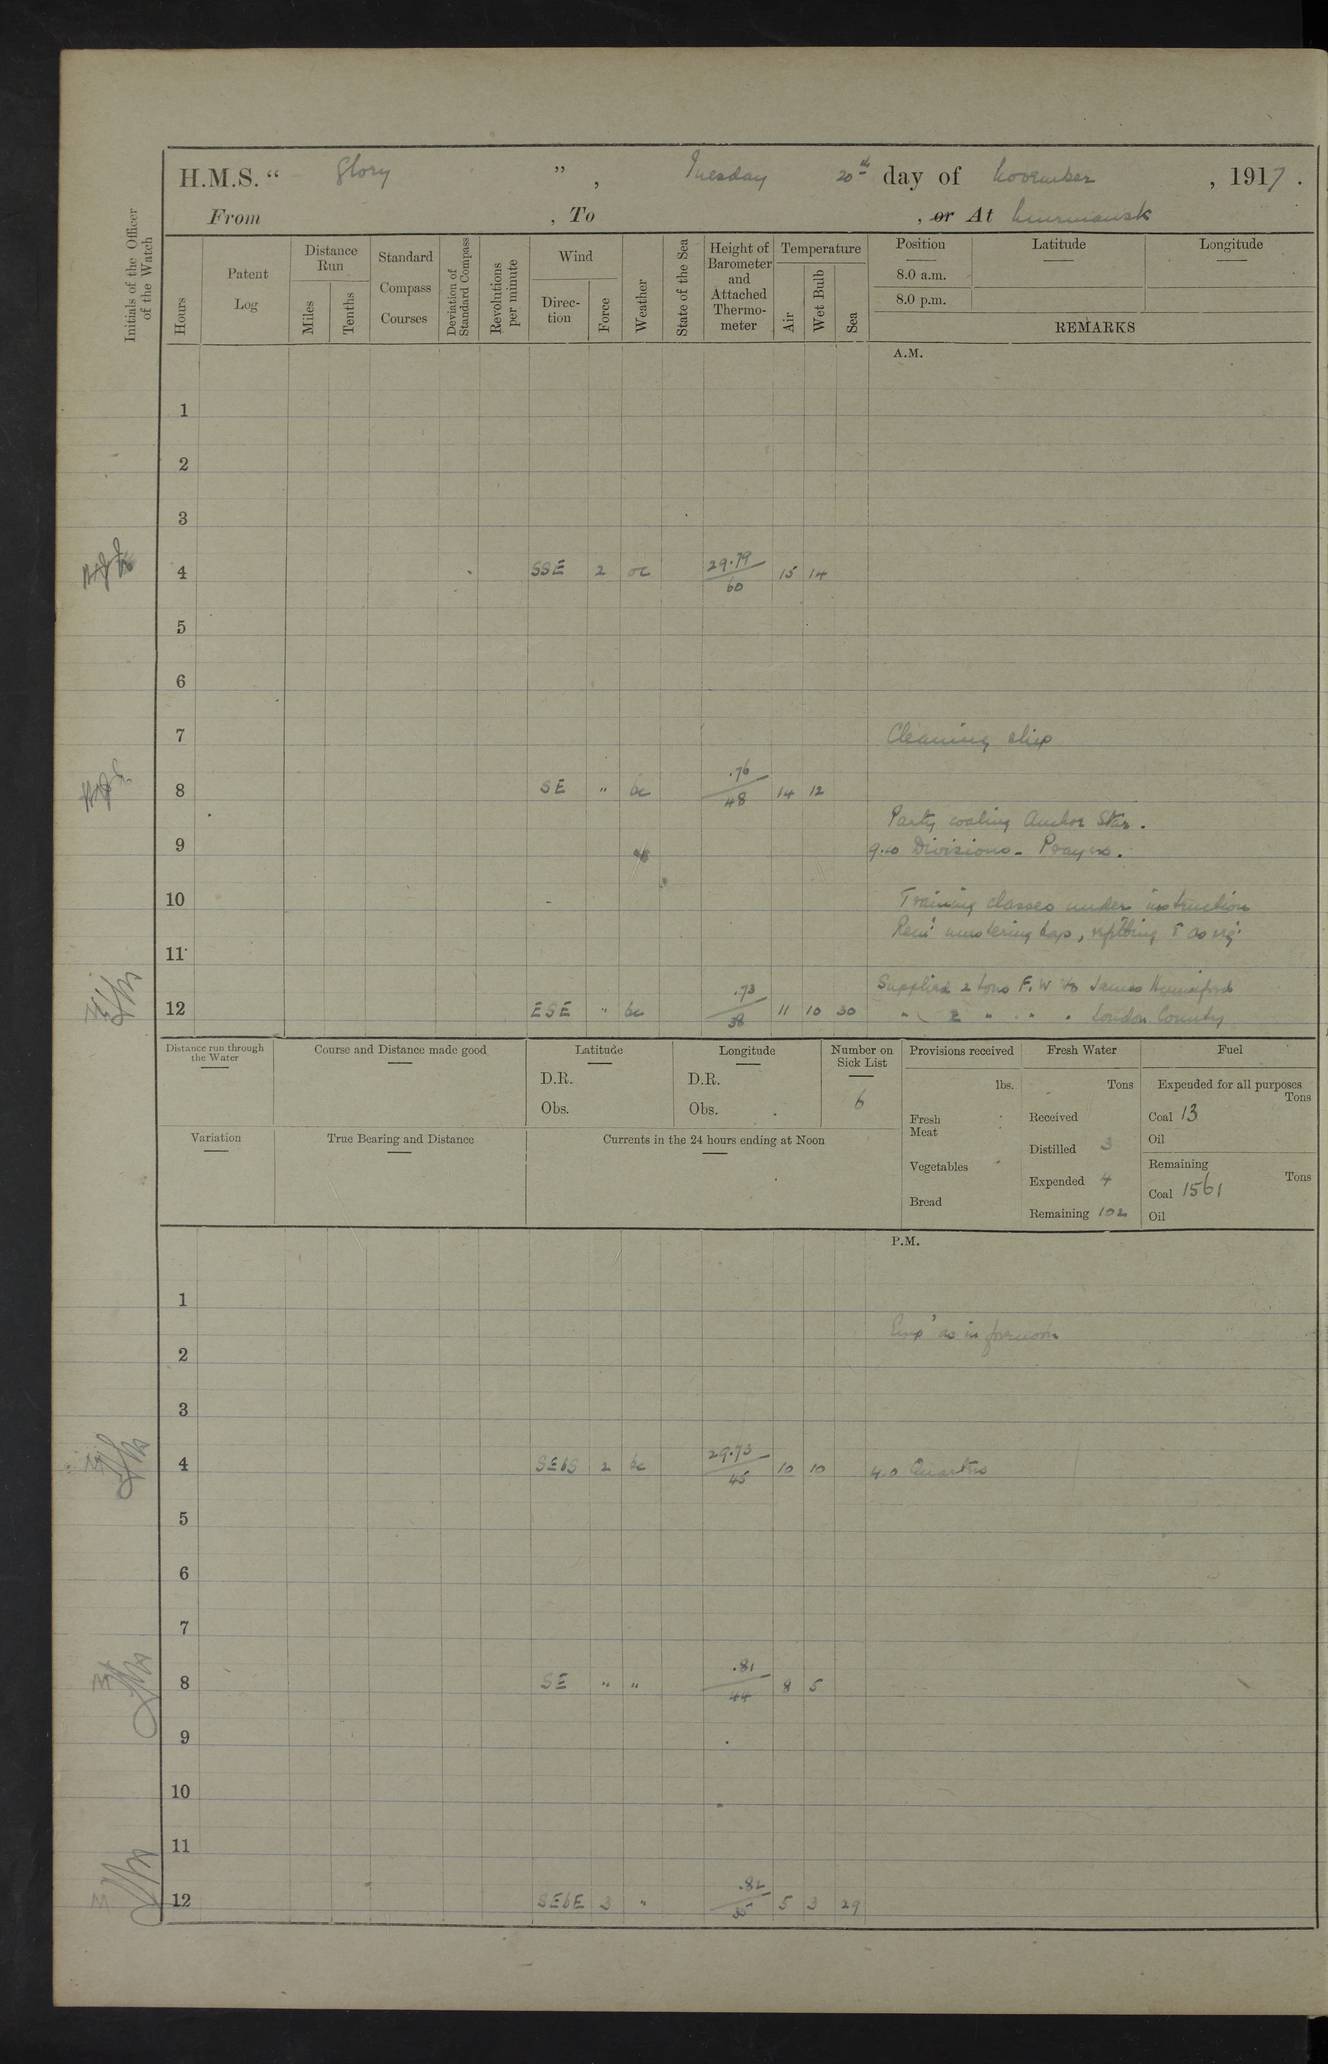 H.M.S. “ Glory ”, Tuesday 20th day of November, 1917.
From , To , or At Murmansk
Initials of the Officer of the Watch
Hours
Patent Log
Distance Run
Miles
Tenths
Standard Compass Courses
Deviation of Standard Compass
Revolutions per minute
Wind
Direc-tion
Force
Weather
State of the Sea
Height of Barometer and Attached Thermo-meter
Temperature
Air
Wet Bulb
Sea
Position
Latitude
Longitude
8.0 a.m.
8.0 p.m.
REMARKS
A.M.
1
2
3
4 SSE 2 oc 29.79 60 15 14
5
6
7 Cleaning ship
8 SE " bc .76 48 14 12
Party coaling Anchor Star.
9 9.10 Divisions - Prayers.
10 Training classes under instruction
Rem' mustering bags,
11
Supplied 2 tons F.W to James
12 ESE " bc .73 38 11 10 30 " 2 " " " London County
Distance run through the Water
Course and Distance made good
Latitude
D.R.
Obs.
Longitude
D.R.
Obs.
Number on Sick List
6
Provisions received
lbs.
Fresh Meat
Vegetables
Bread
Fresh Water
Tons
Received
Distilled 3
Expended 4
Remaining 102
Fuel
Expended for all purposes
Tons
Coal 13
Oil
Remaining
Tons
Coal 1561
Oil
Variation
True Bearing and Distance
Currents in the 24 hours ending at Noon
P.M.
1
Emp' as in forenoon
2
3
4 SEbS 2 bc 29.73 45 10 10 4.0 Quarters
5
6
7
8 SE " " .81 44 8 5
9
10
11
12 SEbE 3 " .82 35 5 3 29